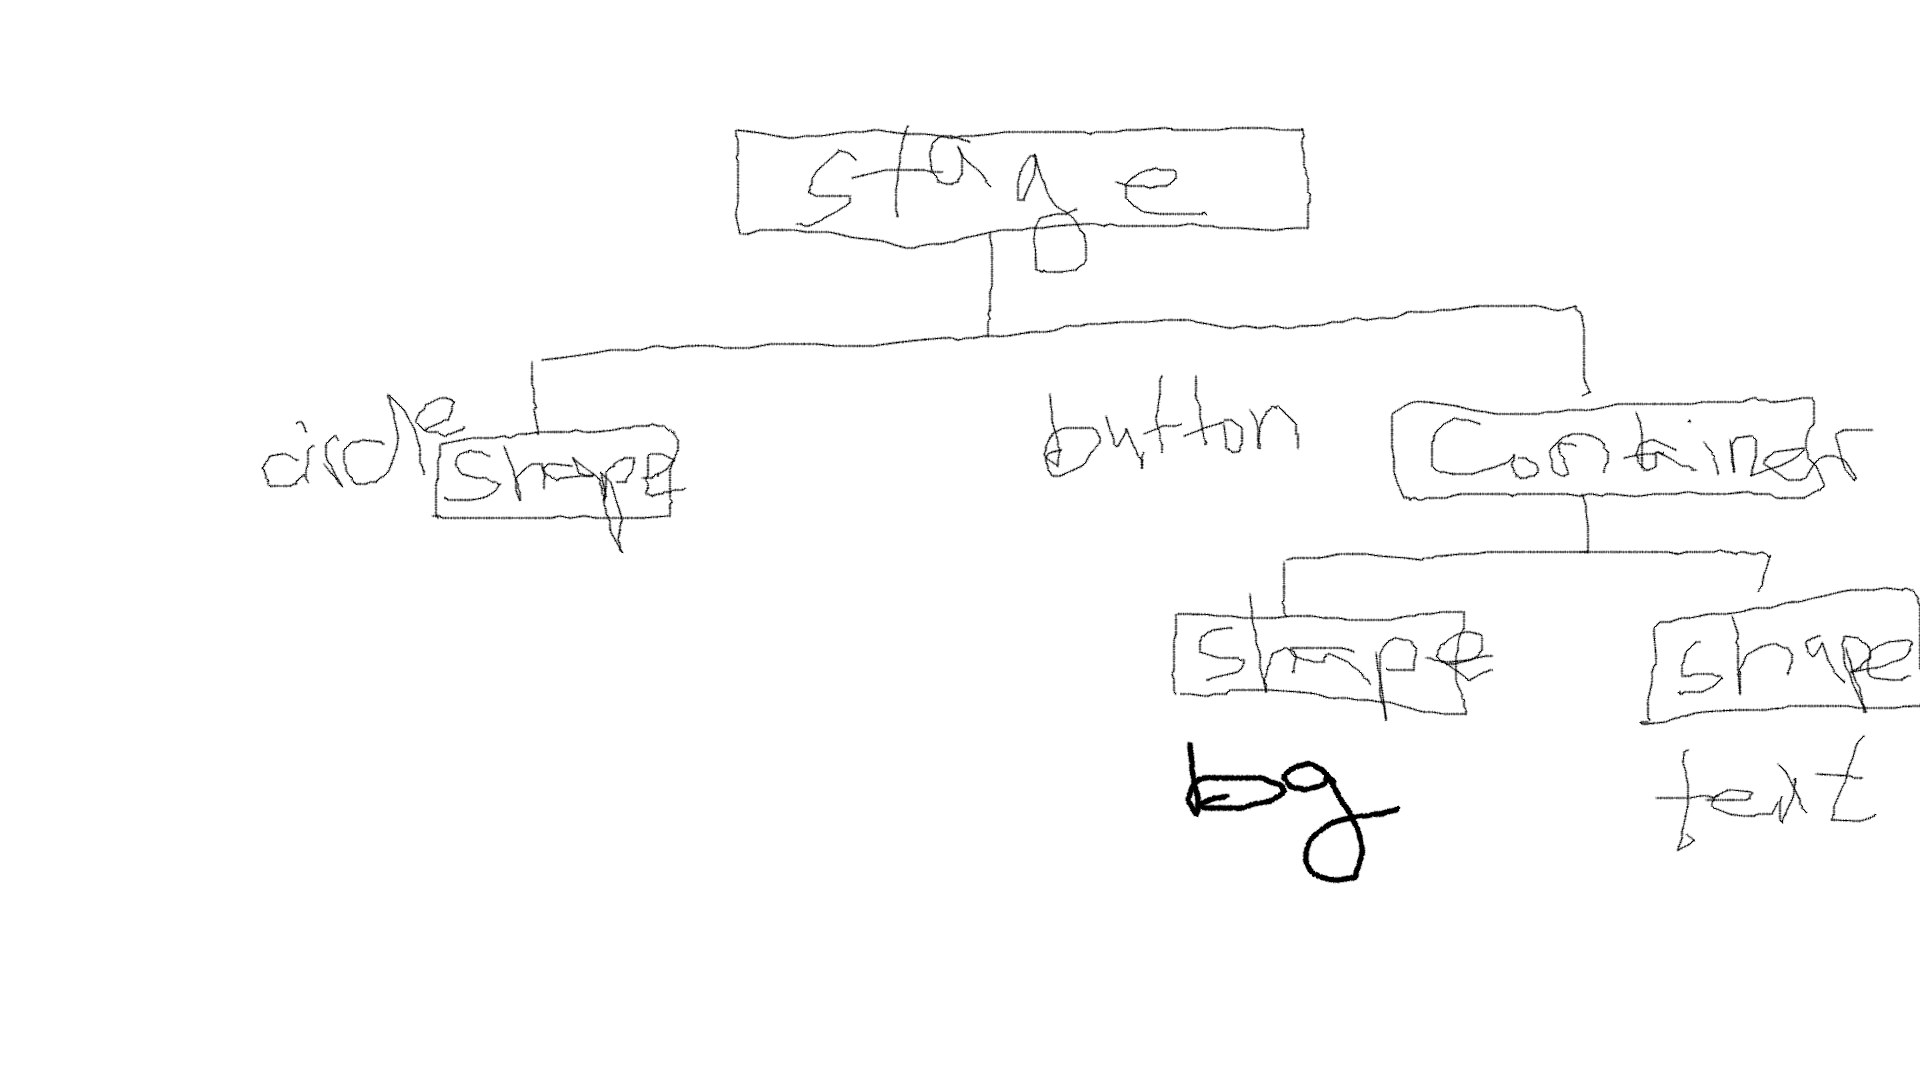 stage
circle
shape
button
Container
shape
shape
bg
text